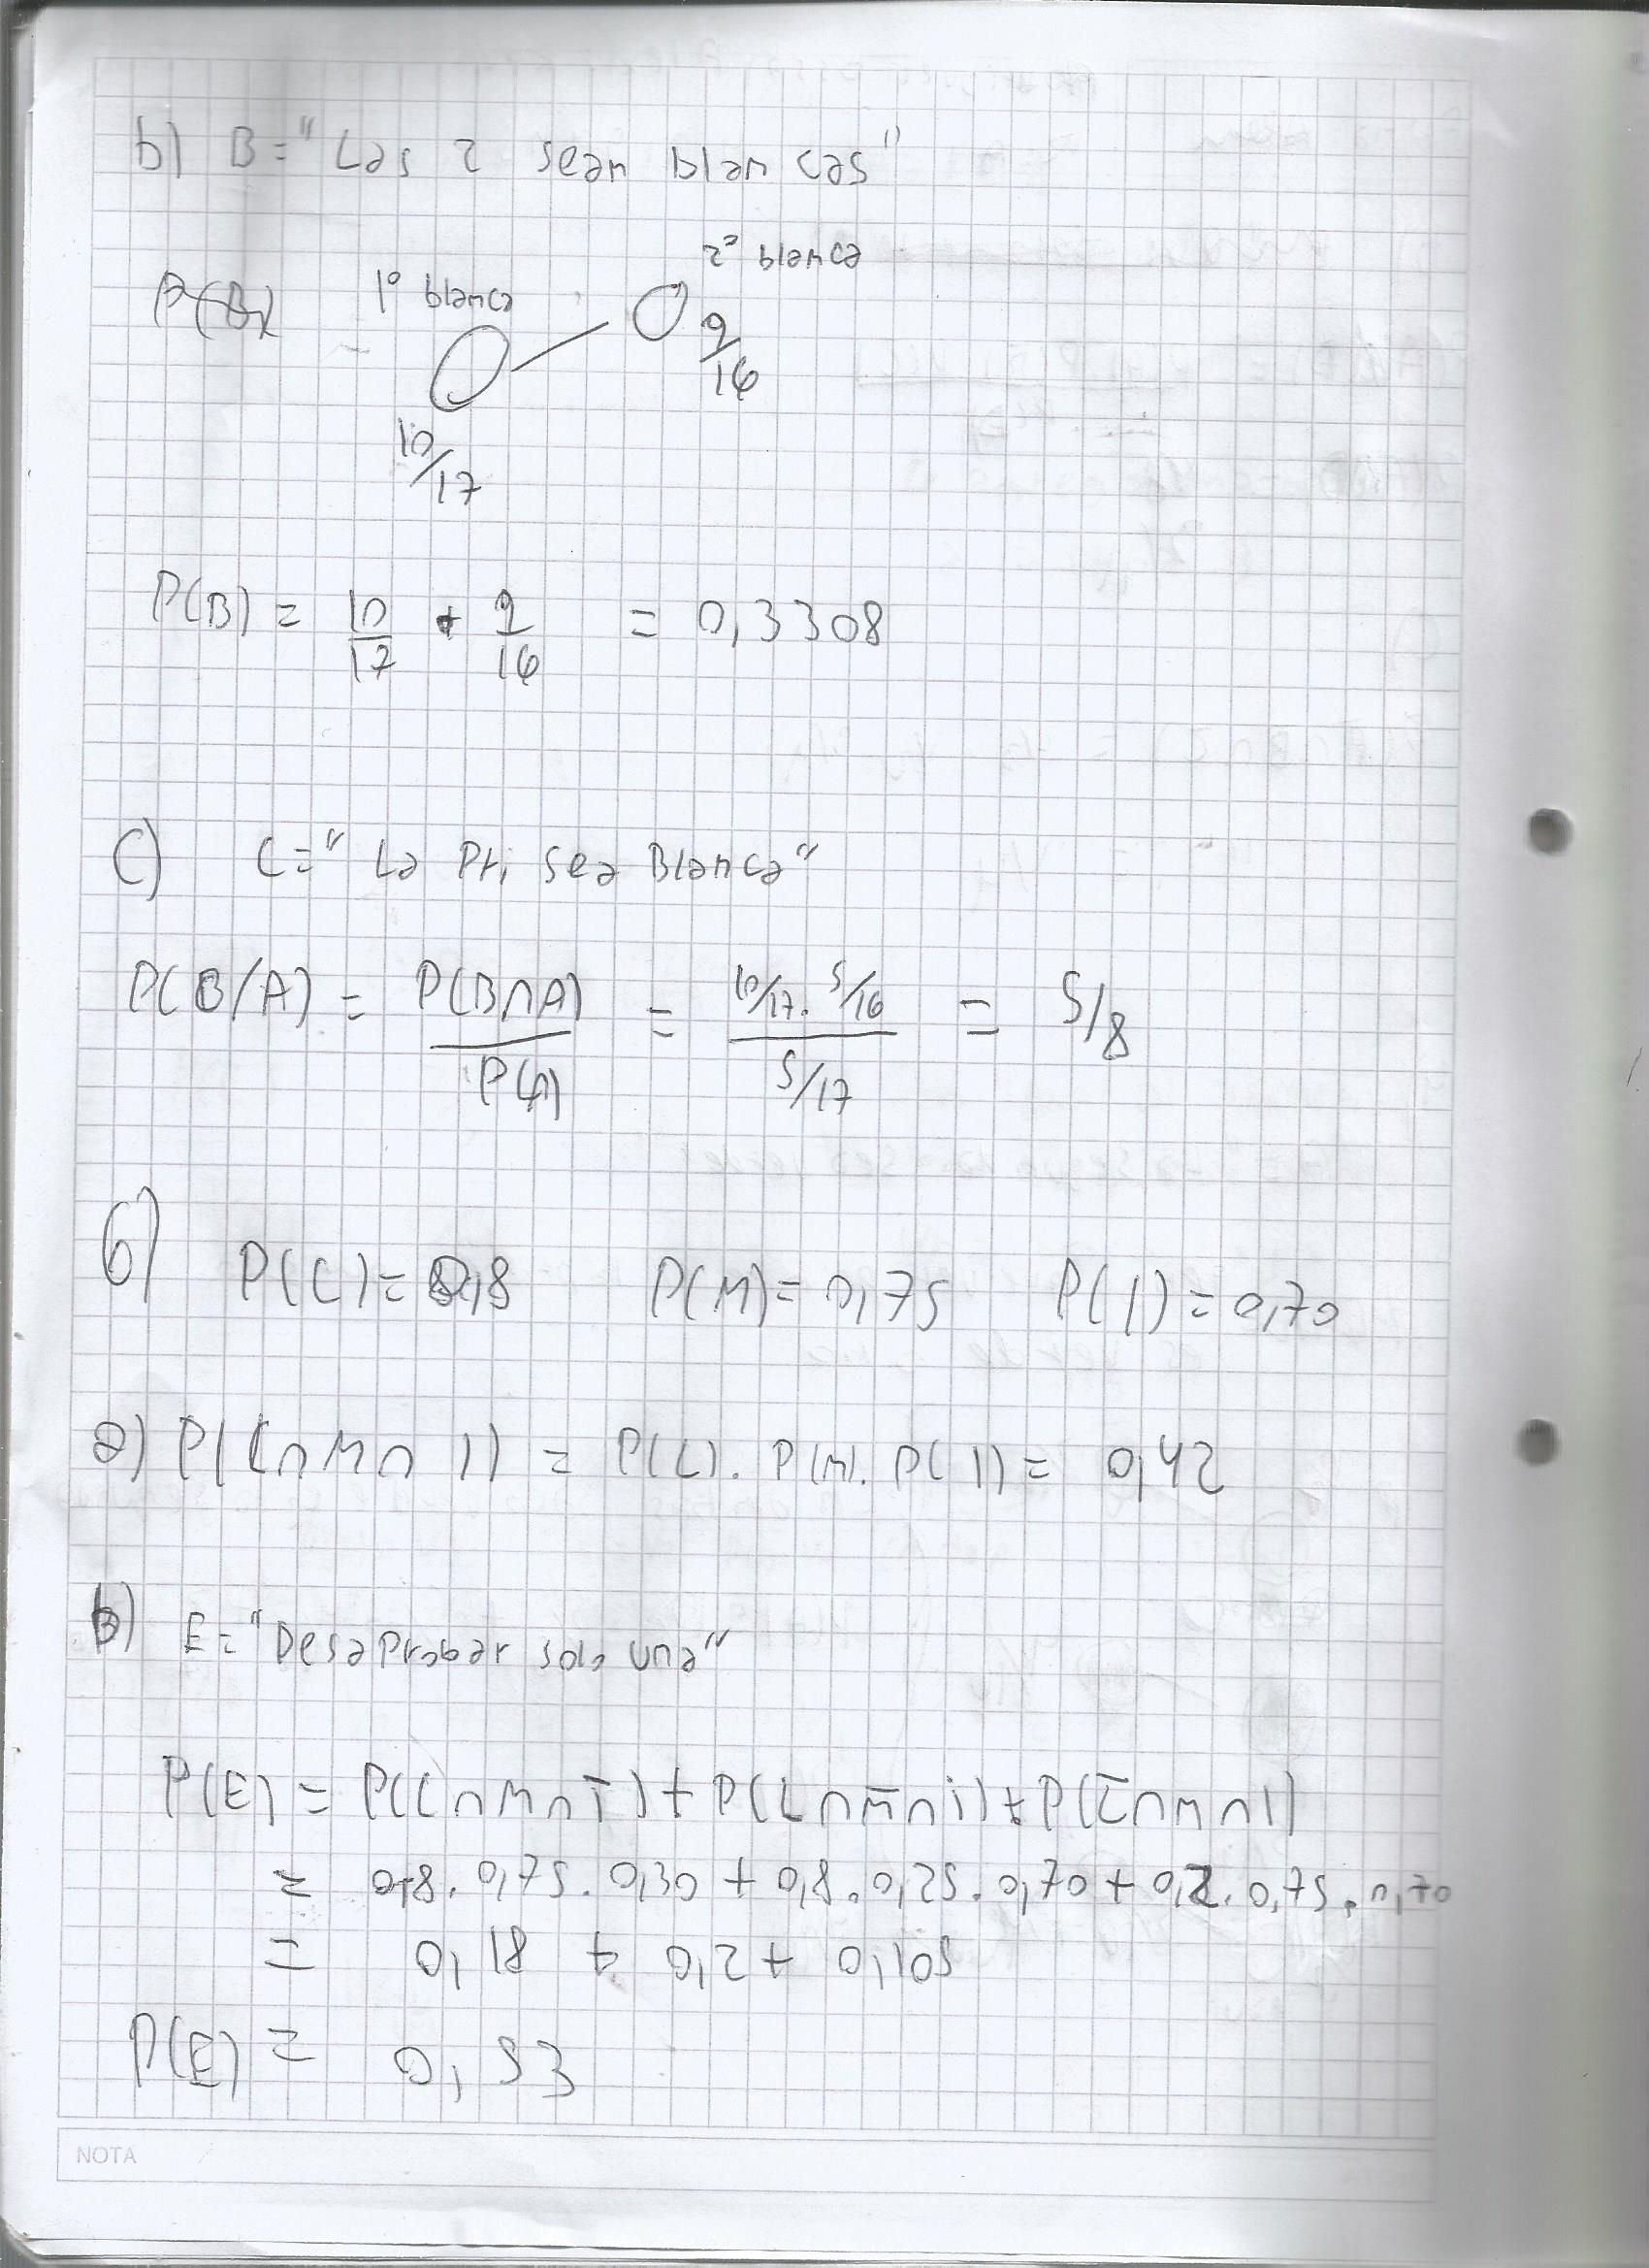 b) B="Las 2 sean blancas"
P(B) 1° blanca 2° blanca
9/16
10/17
P(B) = 10/17 * 9/16 = 0,3308
C) C=" La Pri sea Blanca"
P(B/A) = P(B∩A)/P(A) = (10/17 . 5/16)/(5/17) = 5/8
6) P(C)=0,8 P(M)=0,75 P(I)=0,70
a) P(C∩M∩I) = P(C). P(M). P(I)= 0,42
b) E="Desaprobar solo una"
P(E) = P(C∩M∩Ī)+P(C∩M̄∩I)+P(C̄∩M∩I)
= 0,8. 0,75. 0,30 + 0,8. 0,25. 0,70 + 0,2. 0,75. 0,70
= 0,18 + 0,2 + 0,105
P(E) = 0,53
NOTA